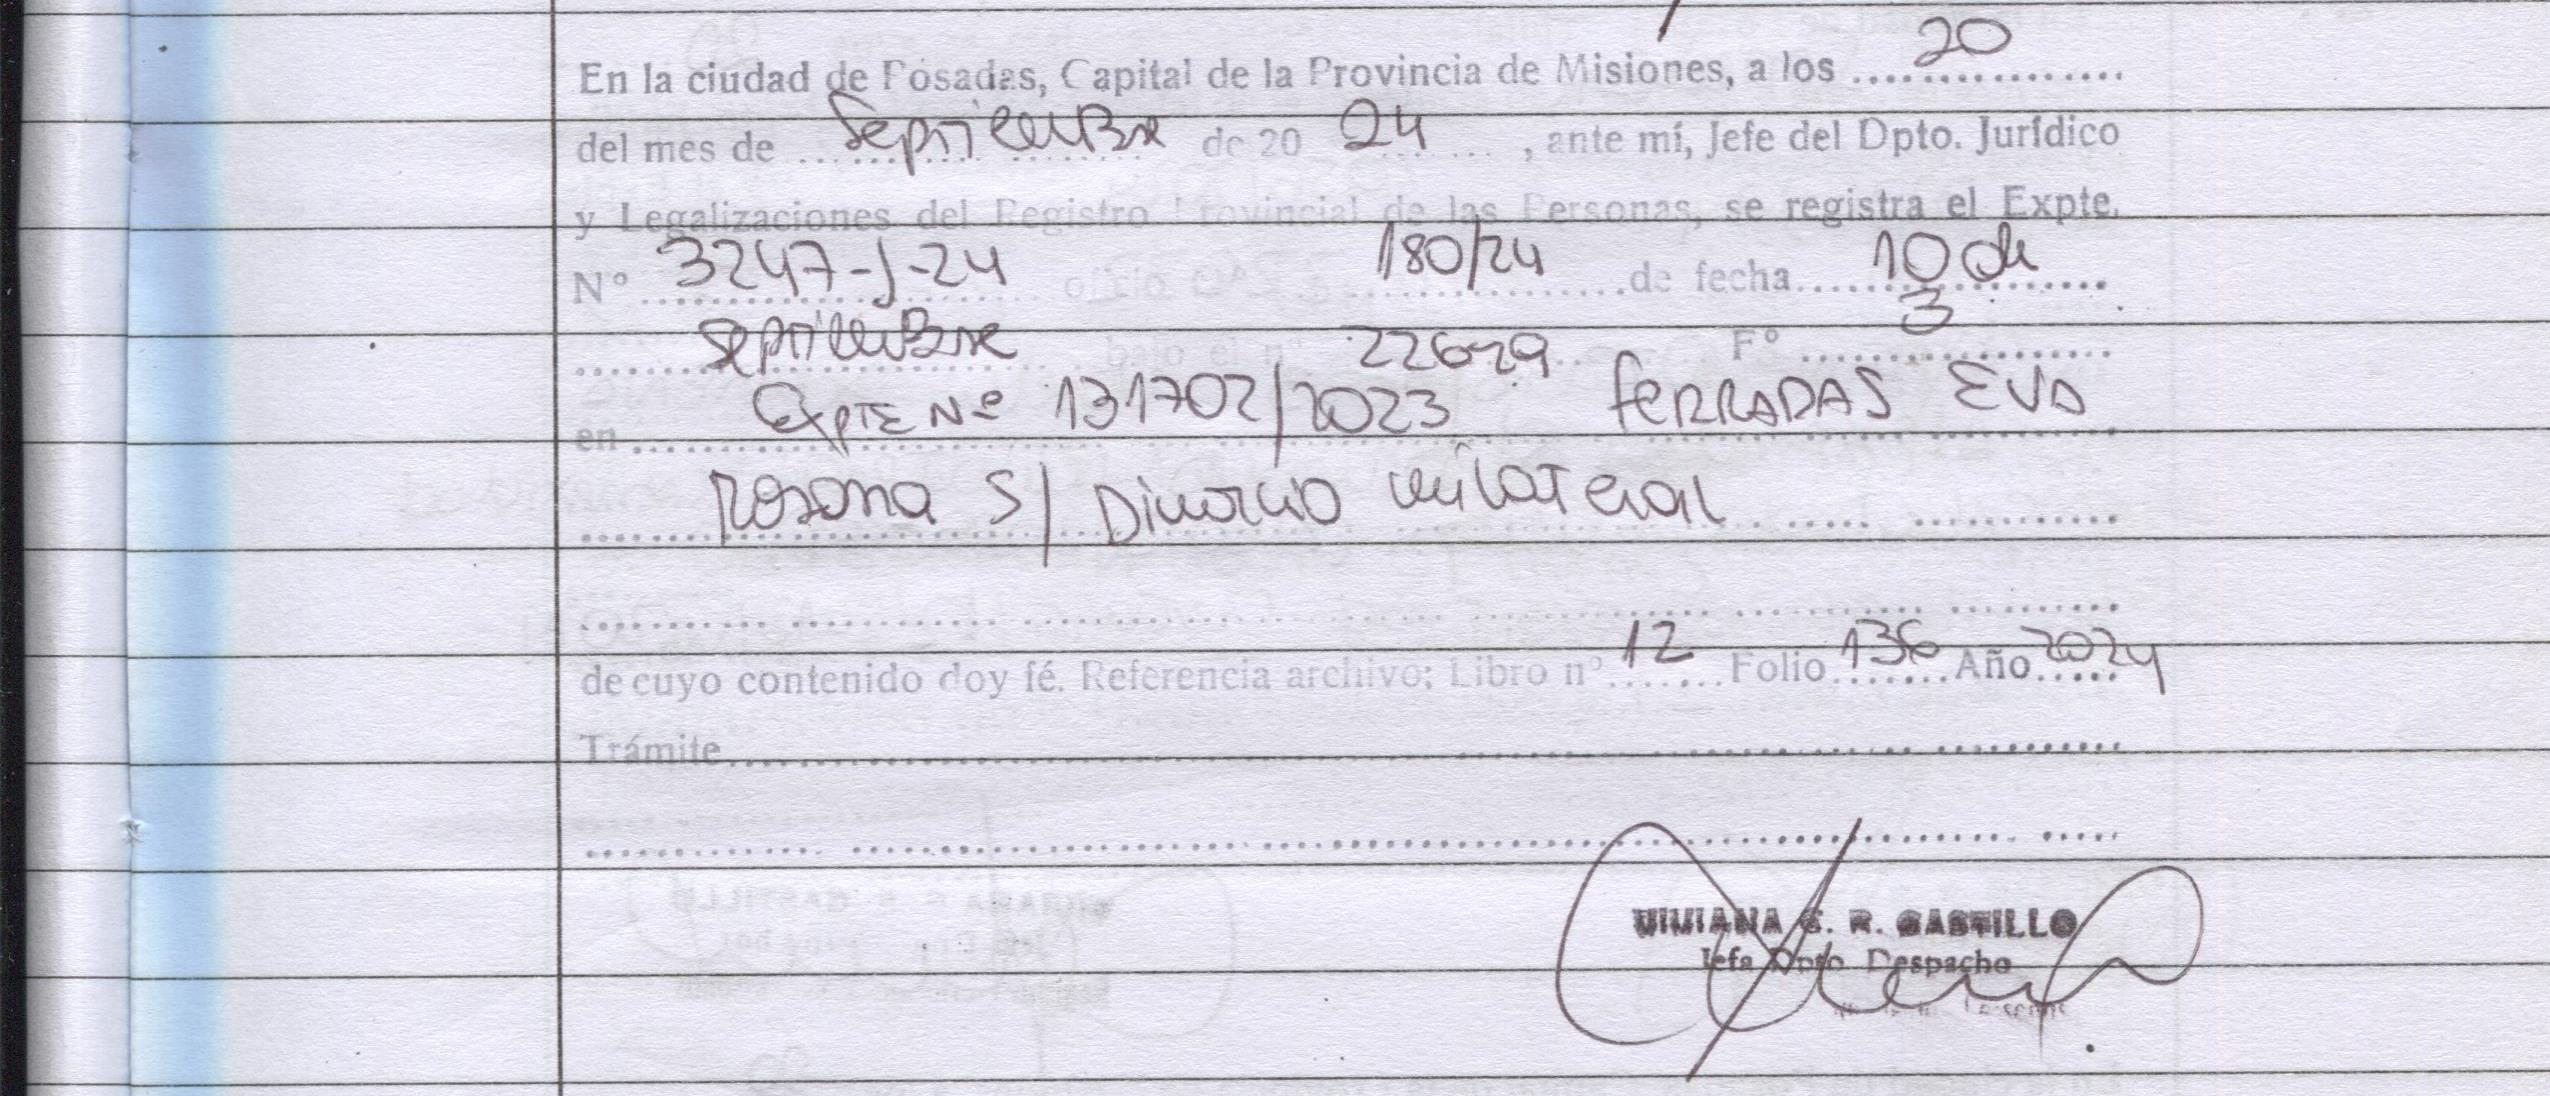 En la ciudad de Posadas, Capital de la Provincia de Misiones, a los 20
del mes de Septiembre de 20 24, ante mí, Jefe del Dpto. Jurídico
y Legalizaciones del Registro Provincial de las Personas, se registra el Expte.
Nº 3247-J-24 oficio 180/24 de fecha 10 de
septiembre bajo el nº Fº 3
en Expte Nº 131702/2023 FERRADAS EVA
Rosana S/ Divorcio unilateral
de cuyo contenido doy fé. Referencia archivo: Libro nº 12 Folio 136 Año 2024
Trámite
VIVIANA R. CASTILLO
Jefa Dpto. Despacho